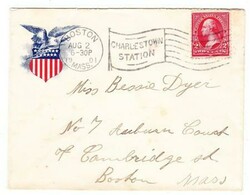 BOSTON
AUG 2
6-30P
MASS.
CHARLESTOWN
STATION
Miss Bessie Dyer
No 7 Auburn Court
of Cambridge st
Boston
Mass